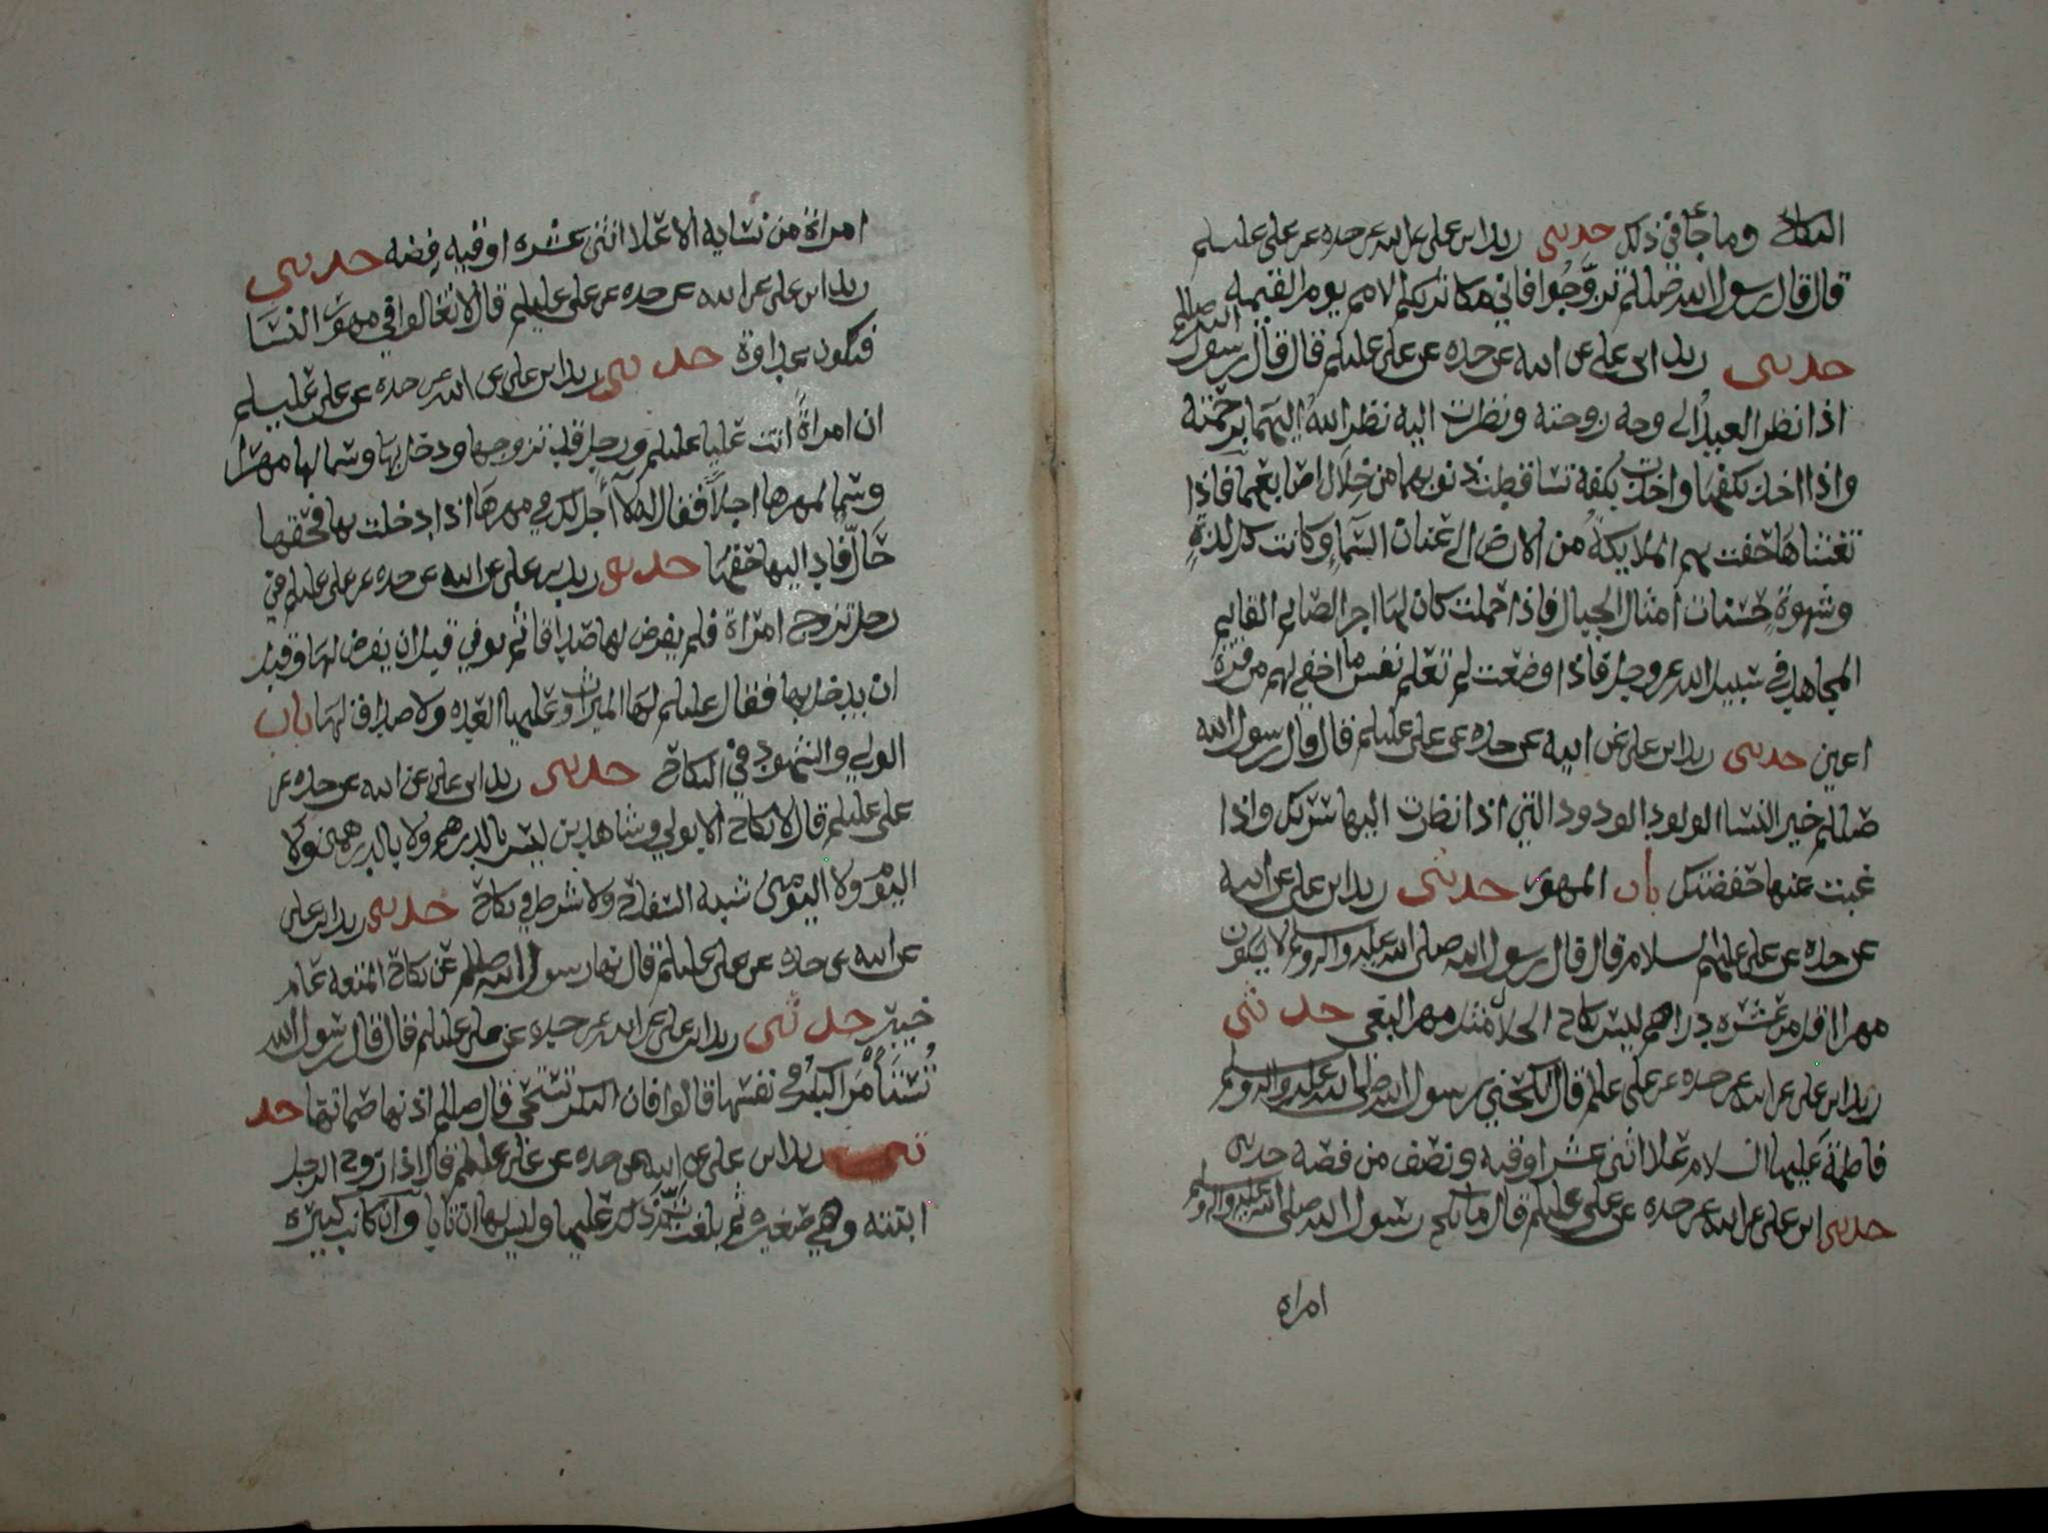 النكاح وما جا في ذلك حدثني زيد ابن علي عن ابيه عن جده عن علي عليلم
قال قال رسول الله صللم تزوجوا فاني مكاثر بكم الامم يوم القيمه
حدثني زيد ابن علي عن ابيه عن جده عن علي عليلم قال قال رسول الله صللم
اذا نظر العبد الى وجه زوجته ونظرت اليه نظر الله اليهما برحمته
واذا اخذ بكفها واخذت بكفه تساقطت ذنوبهما من خلال اصابعهما فاذا
تغشاها حفت بهم الملايكة من الارض الى عنان السماء وكانت كل لذة
وشهوة حسنات امثال الجبال فاذا حملت كان لها اجر الصايم القايم
المجاهد في سبيل الله عز وجل فاذا وضعت لم تعلم نفس ما اخفي لهم من قرة
اعين حدثني زيد ابن علي عن ابيه عن جده عن علي عليلم قال قال رسول الله
صللم خير النسا الولود الودود التي اذا نظرت اليها سرتك واذا
غبت عنها حفضتك باب المهور حدثني زيد ابن علي عن ابيه
عن جده عن علي عليهم السلام قال قال رسول الله صلى الله عليه واله وسلم لا يكون
مهرا اقل من عشره دراهم ليس نكاح الحلال مثل مهر البغي حدثني
زيد ابن علي عن ابيه عن جده عن علي عليلم قال انكحني رسول الله صلى الله عليه واله وسلم
فاطمة عليها السلام علا اثنى عشر اوقيه ونصف من فضه حدثني
حدثني ابن علي عن ابيه عن جده عن علي عليلم قال ما نكح رسول الله صلى الله عليه واله وسلم
امراة
امراة من نسايه الا علا اثنى عشره اوقيه فضه حدثني
زيد ابن علي عن ابيه عن جده عن علي عليلم قال لا تغالوا في مهور النسا
فتكون عداوة حدثني زيد ابن علي عن ابيه عن جده عن علي عليلم
ان امراة اتت عليا عليلم ورجل قد تزوجها ودخل بها وسما لها مهرا
وسما لمهرها اجلا فقال له لا اجل لك في مهرها اذا دخلت بها فحقها
حال فاد اليها حقها حدثني زيد بن علي عن ابيه عن جده عن علي عليلم في
رجل تزوج امراة فلم يفرض لها صداقا ثم توفي قبل ان يفرض لها وقبل
ان يدخل بها فقال عليلم لها الميراث وعليها العده ولا صداق لها باب
الولي والشهود في النكاح حدثني زيد ابن علي عن ابيه عن جده عن
علي عليلم قال لا نكاح الا بولي وشاهدين ليس بالدرهم ولا بالدرهمين ولا
اليوم ولا اليومين شبه السفاح ولا شرط في نكاح حدثني زيد ابن علي
عن ابيه عن جده عن علي عليلم قال نها رسول الله صللم عن نكاح المتعه عام
خيبر حدثني زيد ابن علي عن ابيه عن جده عن علي عليلم قال قال رسول الله
تستأمر البكر في نفسها قالوا فان البكر تستحي قال صللم اذنها صماتها حد
ثني زيد ابن علي عن ابيه عن جده عن علي عليلم قال اذا زوج الرجل
ابنته وهي صغيره ثم بلغت تم ذلك عليها وليس لها ان تابا وان كانت كبيره